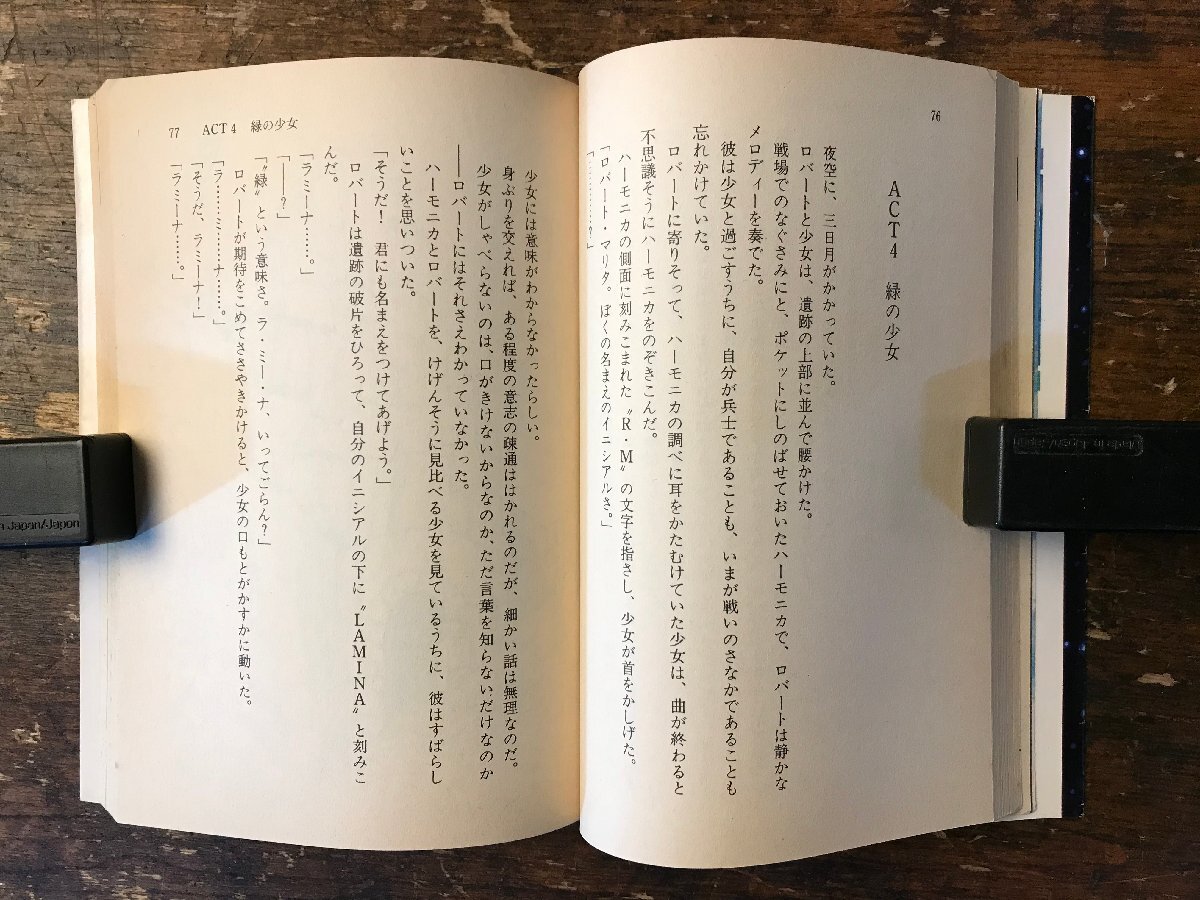 76
ACT4 緑の少女
夜空に、三日月がかかっていた。
ロバートと少女は、遺跡の上部に並んで腰かけた。
戦場でのなぐさみにと、ポケットにしのばせておいたハーモニカで、ロバートは静かな
メロディーを奏でた。
彼は少女と過ごすうちに、自分が兵士であることも、いまが戦いのさなかであることも
忘れかけていた。
ロバートに寄りそって、ハーモニカの調べに耳をかたむけていた少女は、曲が終わると
不思議そうにハーモニカをのぞきこんだ。
ハーモニカの側面に刻みこまれた〝R・M〟の文字を指さし、少女が首をかしげた。
「ロバート・マリタ。ぼくの名まえのイニシアルさ。」
「………?」
77 ACT4 緑の少女
少女には意味がわからなかったらしい。
身ぶりを交えれば、ある程度の意志の疎通ははかれるのだが、細かい話は無理なのだ。
少女がしゃべらないのは、口がきけないからなのか、ただ言葉を知らないだけなのか
――ロバートにはそれさえわかっていなかった。
ハーモニカとロバートを、けげんそうに見比べる少女を見ているうちに、彼はすばらし
いことを思いついた。
「そうだ! 君にも名まえをつけてあげよう。」
ロバートは遺跡の破片をひろって、自分のイニシアルの下に〝LAMINA〟と刻みこ
んだ。
「ラミーナ……。」
「――?」
「〝緑〟という意味さ。ラ・ミー・ナ、いってごらん?」
ロバートが期待をこめてささやきかけると、少女の口もとがかすかに動いた。
「ラ……ミ……ナ……。」
「そうだ、ラミーナ!」
「ラミーナ……。」
Made in Japan/Japon
n Japan/Japon